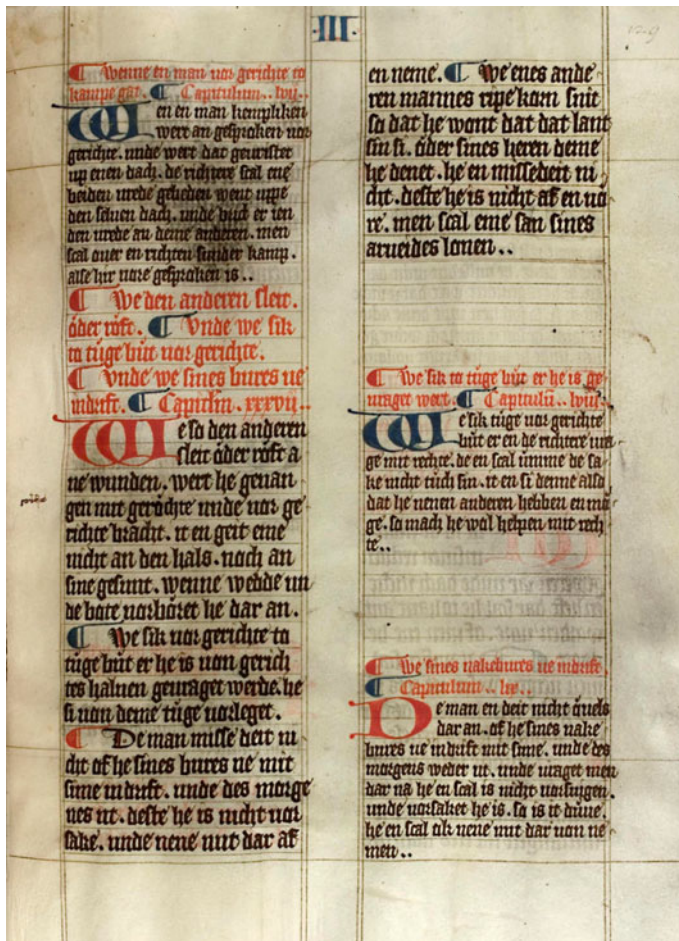 ·III·
129
¶ Wenne en man vor gerichte to
kampe gat. ¶ Capitulum .. lvij..
Wen en man kempliken
wert an gesproken vor
gerichte. unde wert dat gevristet
up enen dach. de richtere scal ene
beiden vrede gebeden went uppe
den seluen dach. unde brict er ien
den vrede an deme anderen. men
scal ouer en richten sunder kamp.
alse hir vore gesproken is ..
¶ We den anderen sleit.
oder roft. ¶ Vnde we sik
to tuge but vor gerichte.
¶ Vnde we sines bures ve
indrift. ¶ Capitlm . xxxvij ..
We so den anderen
sleit oder roft a
ne wunden. wert he gevan
gen mit gerochte unde vor ge
richte bracht. it en geit eme
nicht an den hals. noch an
sine gesunt. wenne wedde un
de bote vorboret he dar an.
¶ We sik vor gerichte to
tuge but er he is von gerich
tes haluen gevraget werde. he
si von deme tuge vorleget.
¶ De man misse deit ni
cht of he sines bures ve mit
sime indrift. unde des morge
nes ut. deste he is nicht vor
sake. unde nene nut dar af
en neme. ¶ We enes ande
ren mannes ripe korn snit
so dat he wont dat dat lant
sin si. oder sines heren deme
he denet. he en missedeit ni
cht. deste he is nicht af en vo
re. men scal eme san sines
arueides lonen ..
¶ We sik to tuge but er he is ge
vraget wert. ¶ Capitulu .. lviij ..
We sik tuge vor gerichte
but er en de richtere vra
ge mit rechte. de en scal umme de sa
ke nicht tuch sin. it en si denne also
dat he nenen anderen hebben en mo
ge. so mach he wol helpen mit rech
te ..
¶ We sines nakebures ve indrift.
¶ Capitulum .. lix ..
De man en deit nicht ouels
dar an. of he sines nake
bures ve indrift mit sime. unde des
morgens weder ut. unde vraget men
dar na he en scal is nicht vorsuigen.
unde vorsaket he is. so is it duve.
he en scal ok nene nut dar von ne
men ..